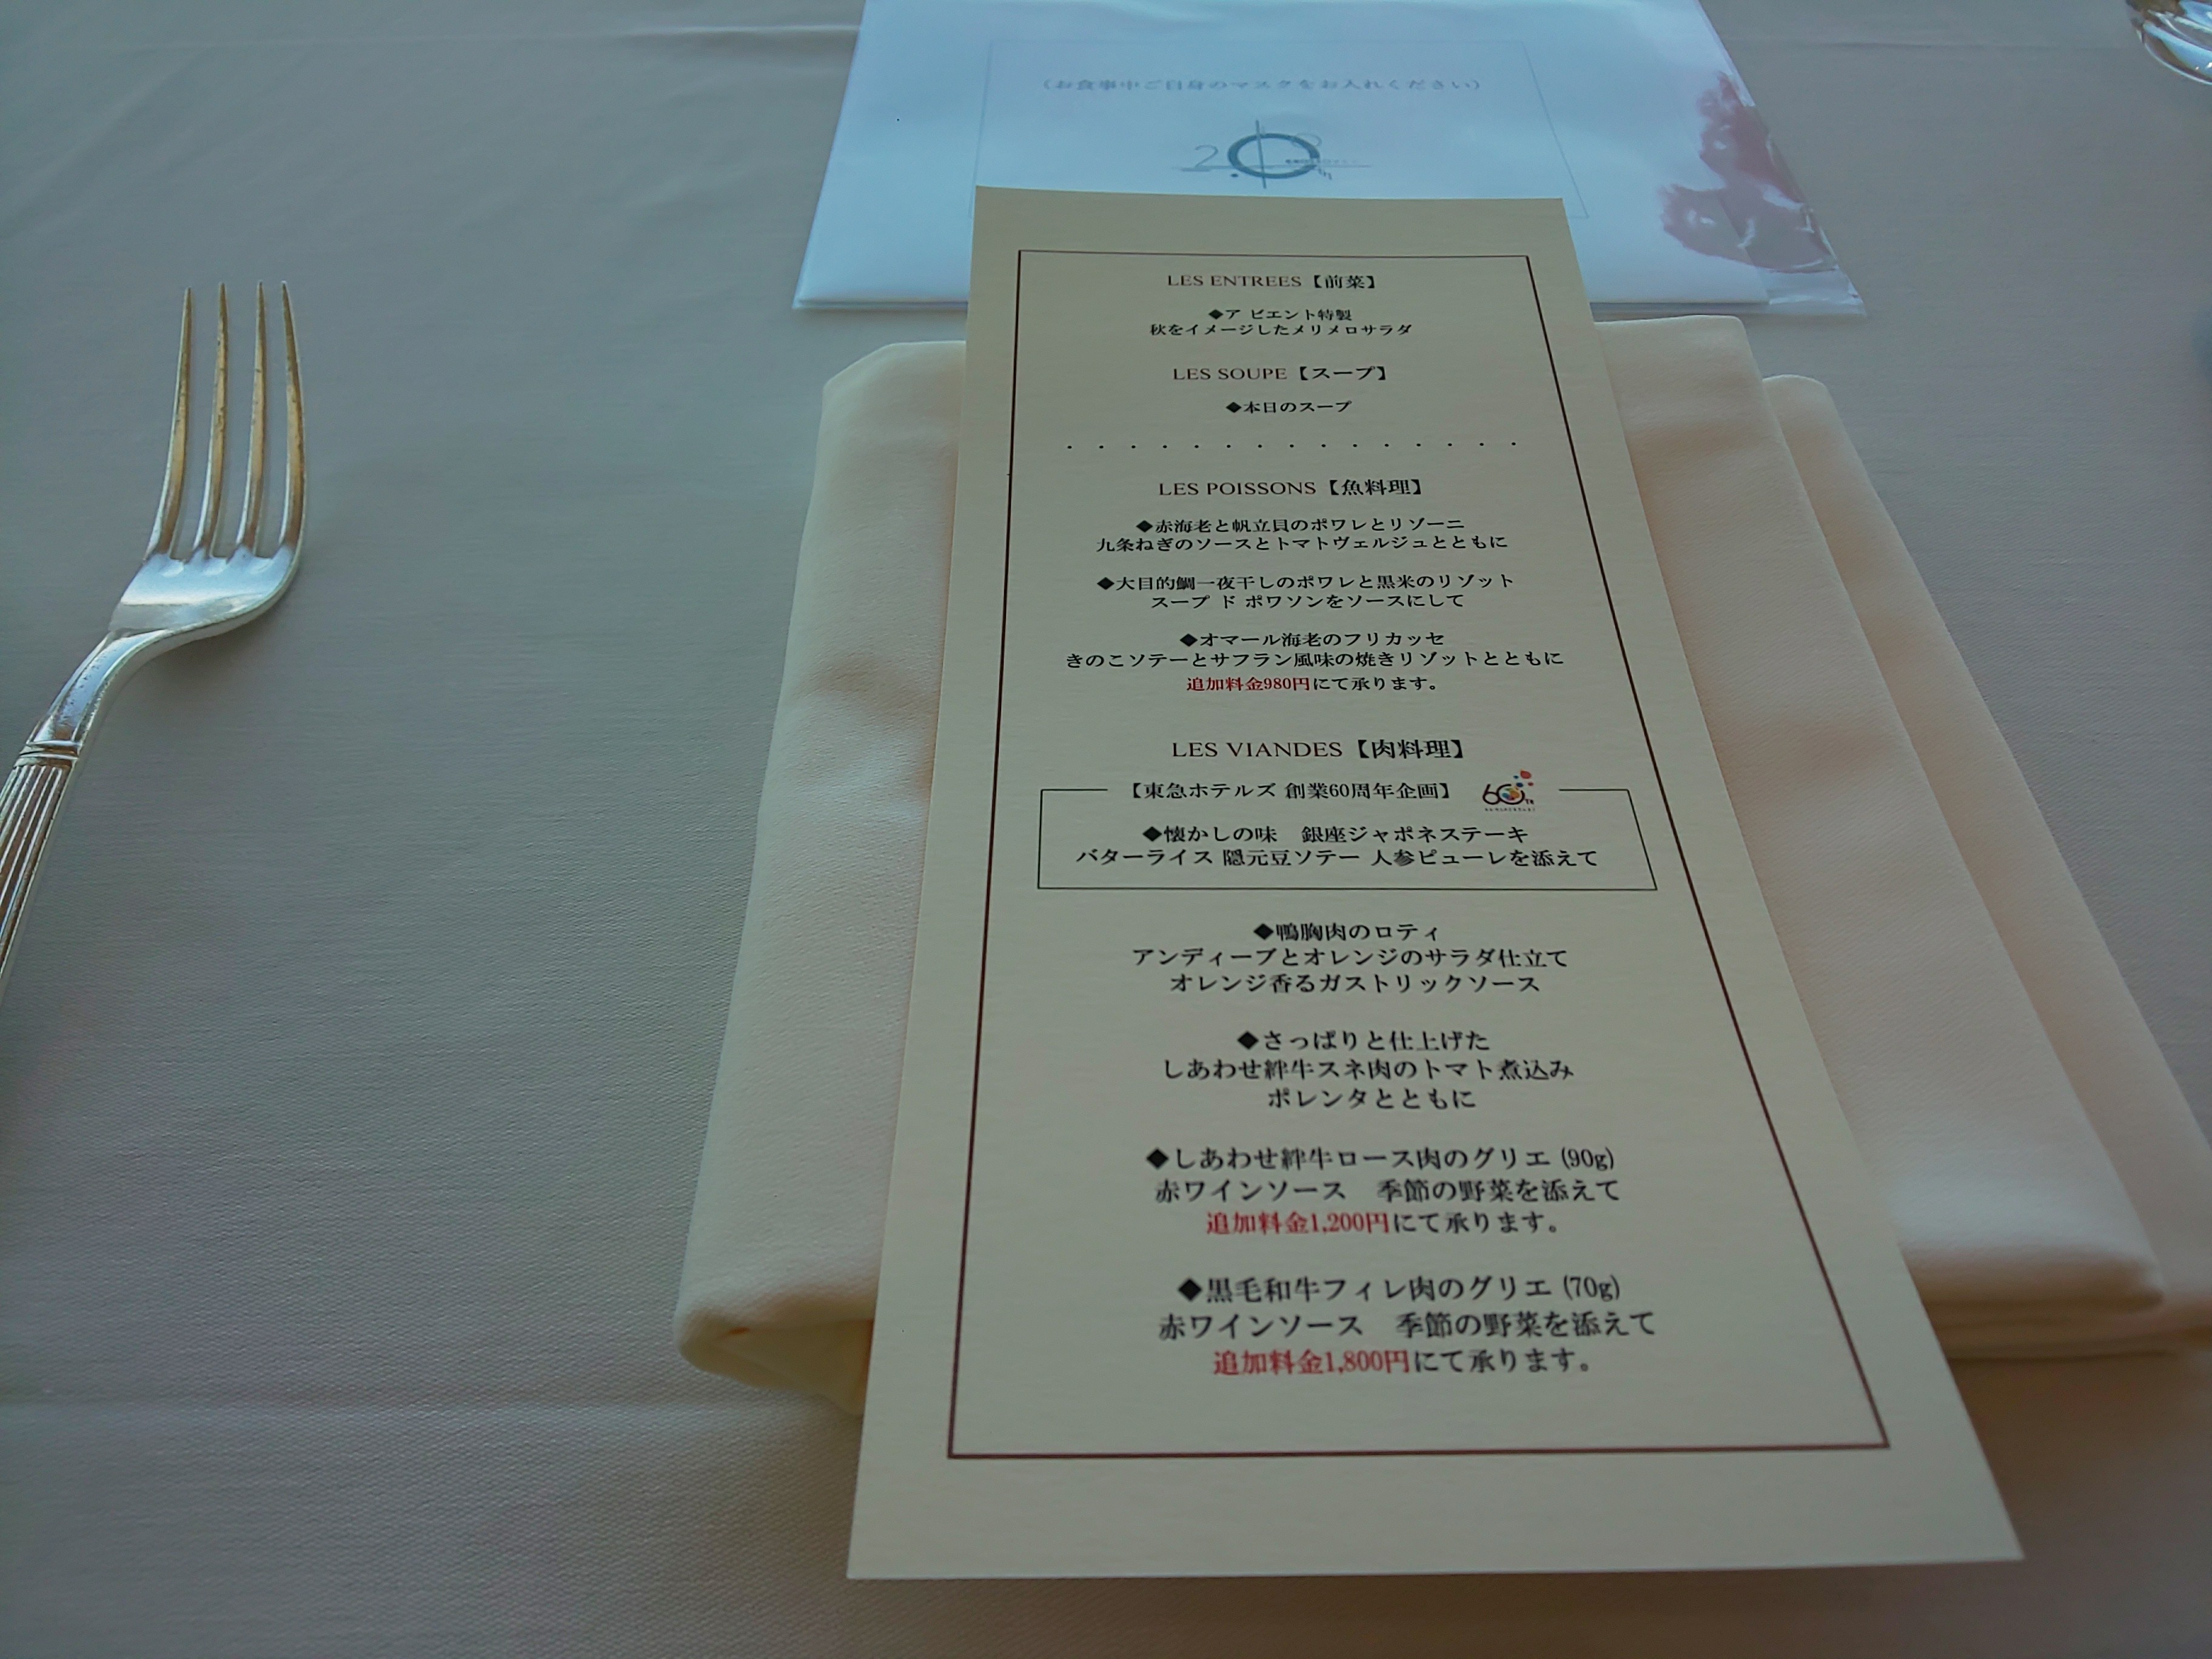 (お食事中ご自身のマスクをお入れください)
LES ENTREES【前菜】
◆ア ビエント特製
秋をイメージしたメリメロサラダ
LES SOUPE【スープ】
◆本日のスープ
・・・・・・・・・・・・・・・
LES POISSONS【魚料理】
◆赤海老と帆立貝のポワレとリゾーニ
九条ねぎのソースとトマトヴェルジュとともに
◆大目的鯛一夜干しのポワレと黒米のリゾット
スープ ド ポワソンをソースにして
◆オマール海老のフリカッセ
きのこソテーとサフラン風味の焼きリゾットとともに
追加料金980円にて承ります。
LES VIANDES【肉料理】
【東急ホテルズ 創業60周年企画】 60
◆懐かしの味　銀座ジャポネステーキ
バターライス 隠元豆ソテー 人参ピューレを添えて
◆鴨胸肉のロティ
アンディーブとオレンジのサラダ仕立て
オレンジ香るガストリックソース
◆さっぱりと仕上げた
しあわせ絆牛スネ肉のトマト煮込み
ポレンタとともに
◆しあわせ絆牛ロース肉のグリエ (90g)
赤ワインソース　季節の野菜を添えて
追加料金1,200円にて承ります。
◆黒毛和牛フィレ肉のグリエ (70g)
赤ワインソース　季節の野菜を添えて
追加料金1,800円にて承ります。